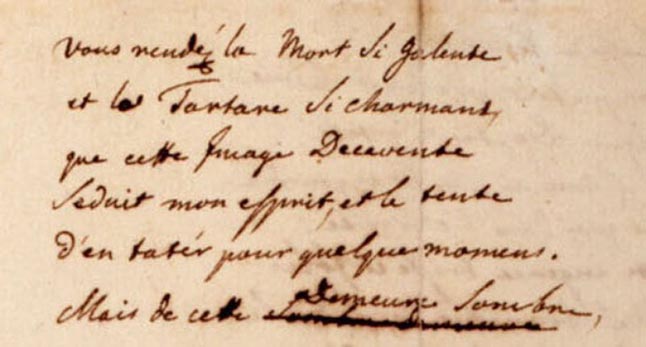 vous rendéz la Mort si galente
et le Tartare si charmant,
que cette Image Decevente
seduit mon esprit, et le tente
d'en tatér pour quelque momens.
Mais de cette Demeure Sombre,